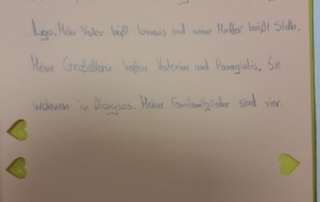 Mein Vater heißt Ioannis und meine Mutter heißt Stella.
Meine Großeltern heißen Katerina und Panagiotis. Sie
wohnen in Dionysos. Meine Familienmitglieder sind vier.